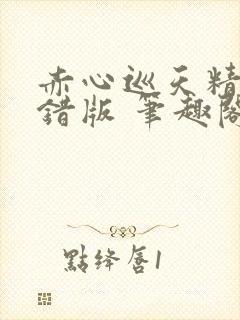 赤心巡天精
錯版 筆趣閣
點絳唇1